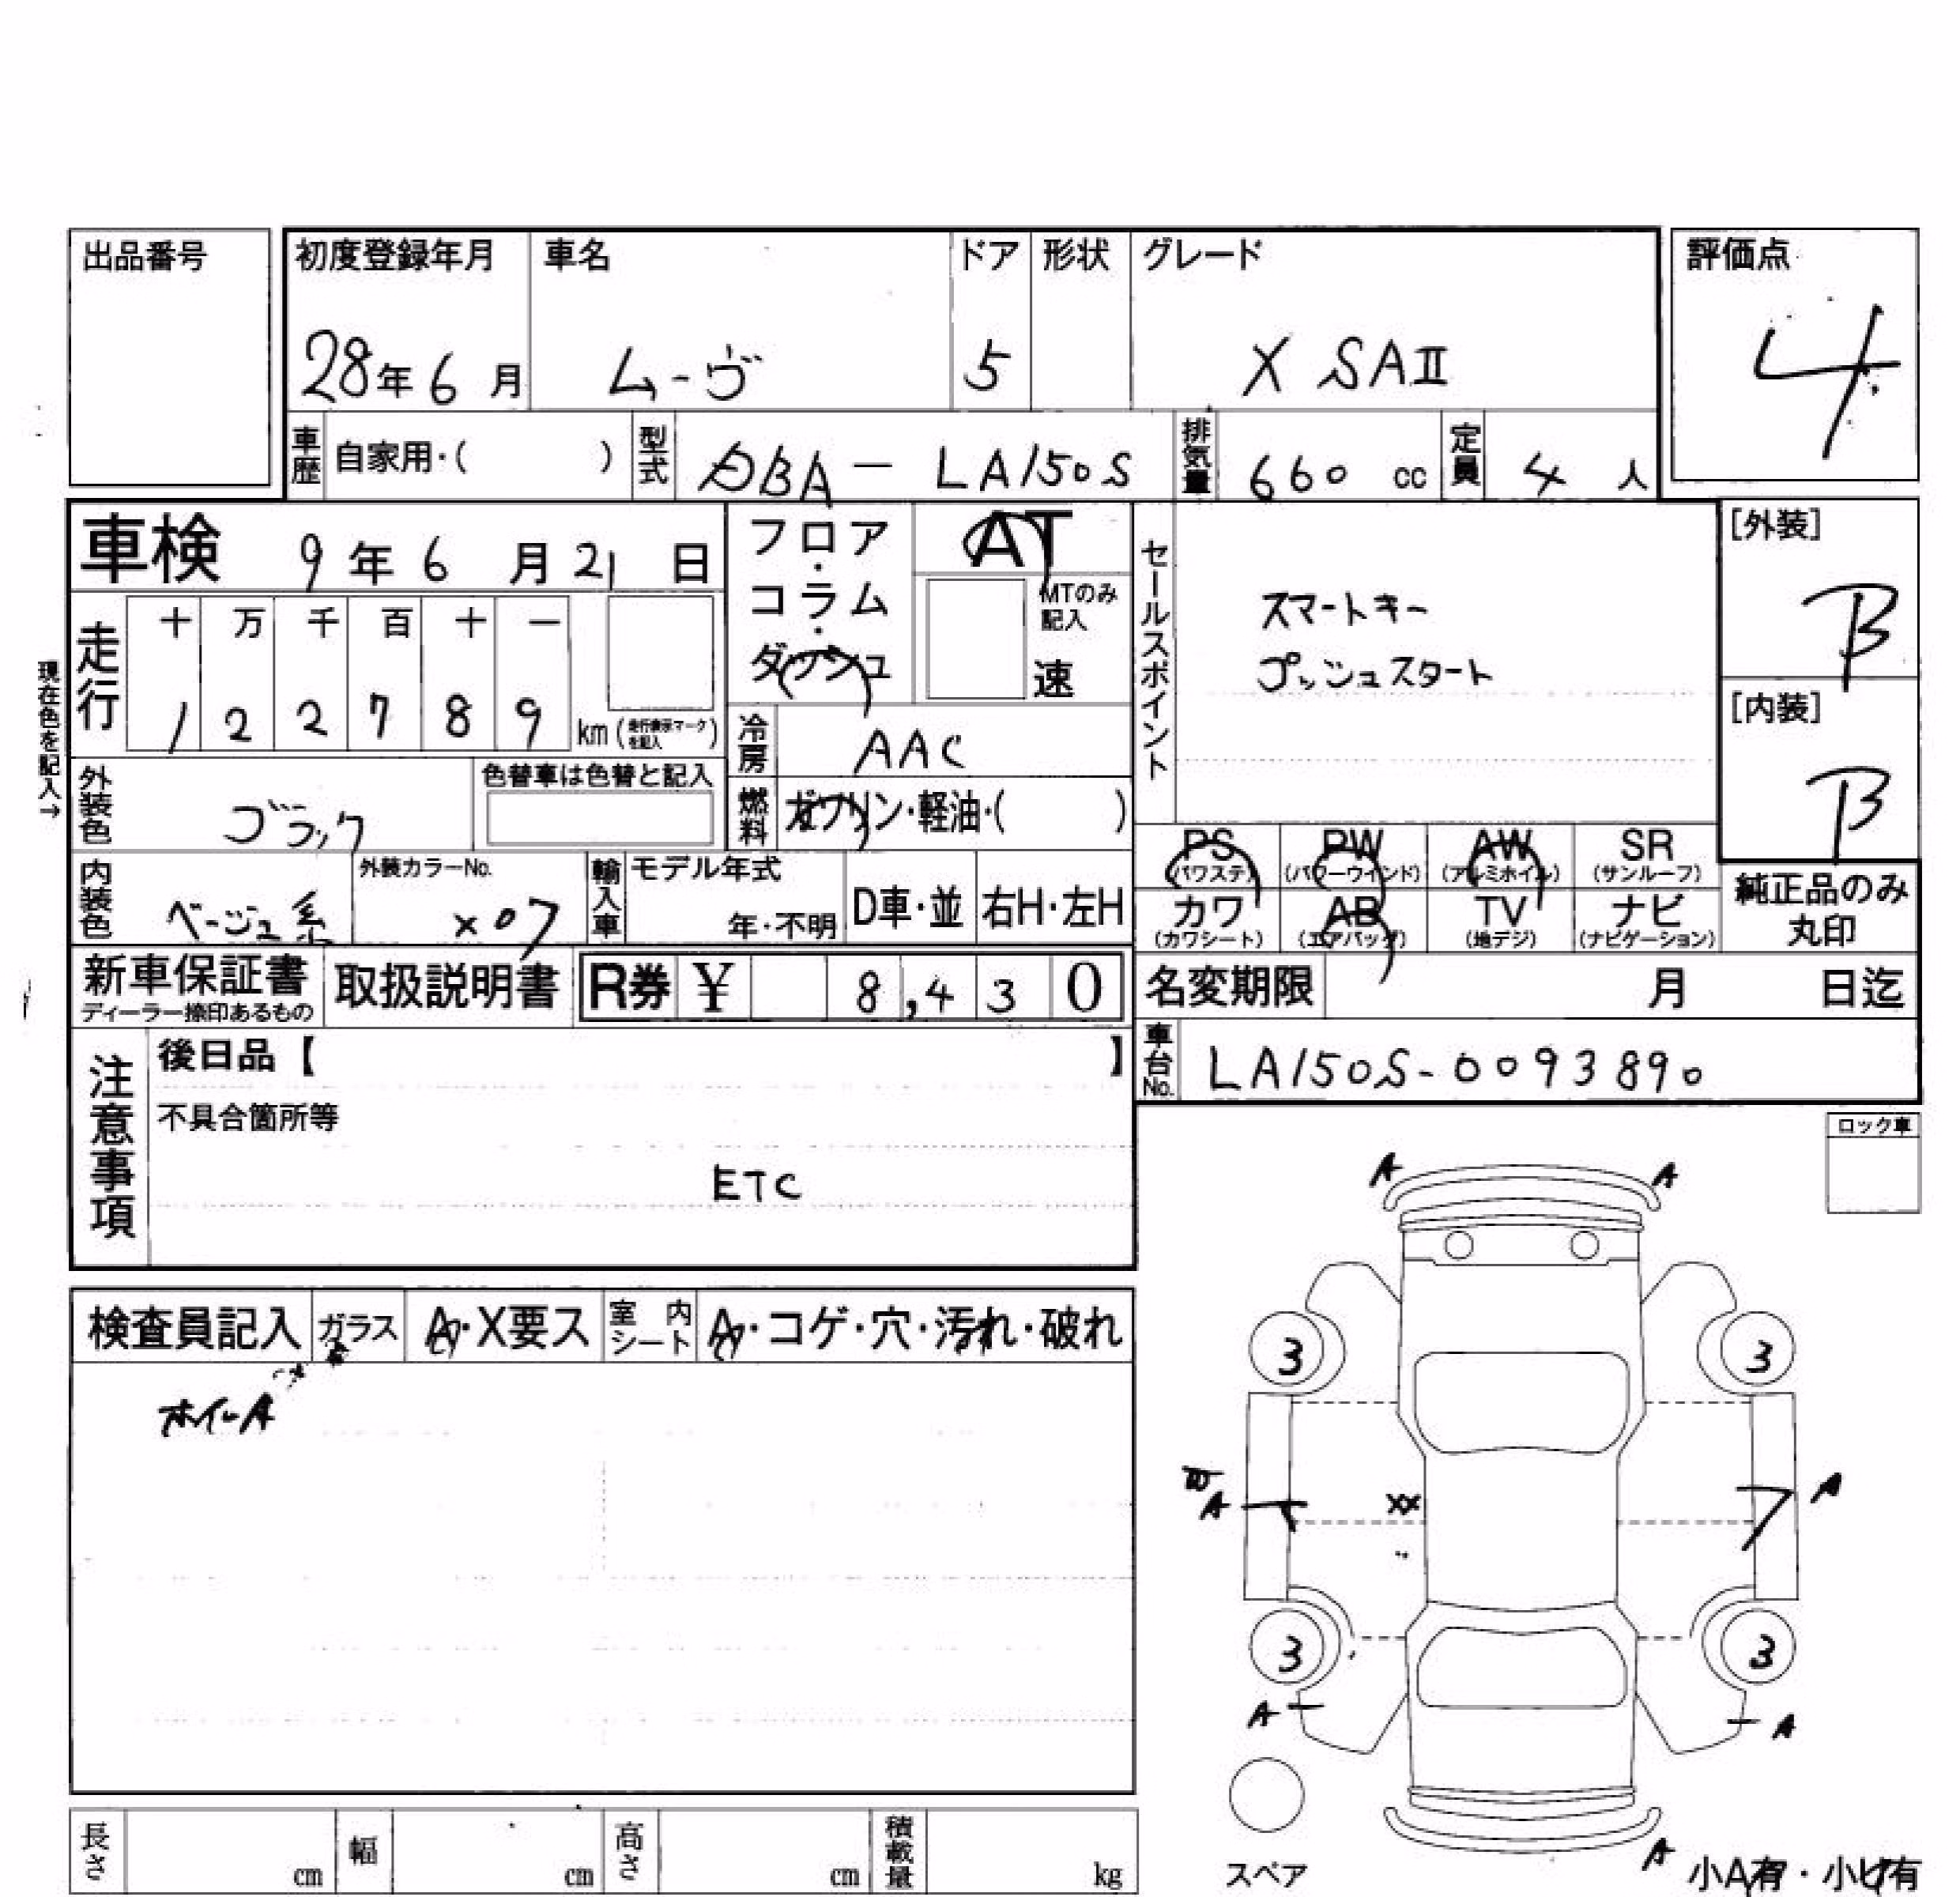 出品番号
初度登録年月 車名 ドア 形状 グレード 評価点
28年 6 月 ムーヴ 5 X SAⅡ 4
車歴 自家用・( ) 型式 DBA - LA150S 排気量 660 cc 定員 4 人
車検 9 年 6 月 21 日
フロア・コラム・ダッシュ AT
MTのみ記入 速
セールスポイント
スマートキー
プッシュスタート
[外装] B
[内装] B
現在色を記入→
走行 十 万 千 百 十 一
1 2 2 7 8 9 km (走行表示マークを記入)
冷房 AAC
外装色 ブラック 色替車は色替と記入
燃料 ガソリン・軽油・( )
内装色 ベージュ系 外装カラーNo. X07
輸入車 モデル年式 年・不明 D車・並 右H・左H
PS (パワステ) PW (パワーウインド) AW (アルミホイル) SR (サンルーフ)
カワ (カワシート) AB (エアバッグ) TV (地デジ) ナビ (ナビゲーション)
純正品のみ丸印
新車保証書 ディーラー捺印あるもの 取扱説明書 R券 ¥ 8,430
名変期限 月 日迄
車台No. LA150S-0093890
注意事項
後日品【 】
不具合箇所等
ETC
ロック車
検査員記入 ガラス A・X要ス 室内シート A・コゲ・穴・汚れ・破れ
ホイールA
A A
3 3
A XX A
3 3
A A
A
スペア
小A有・小U有
長さ cm 幅 cm 高さ cm 積載量 kg